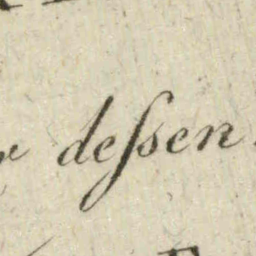 deſsen